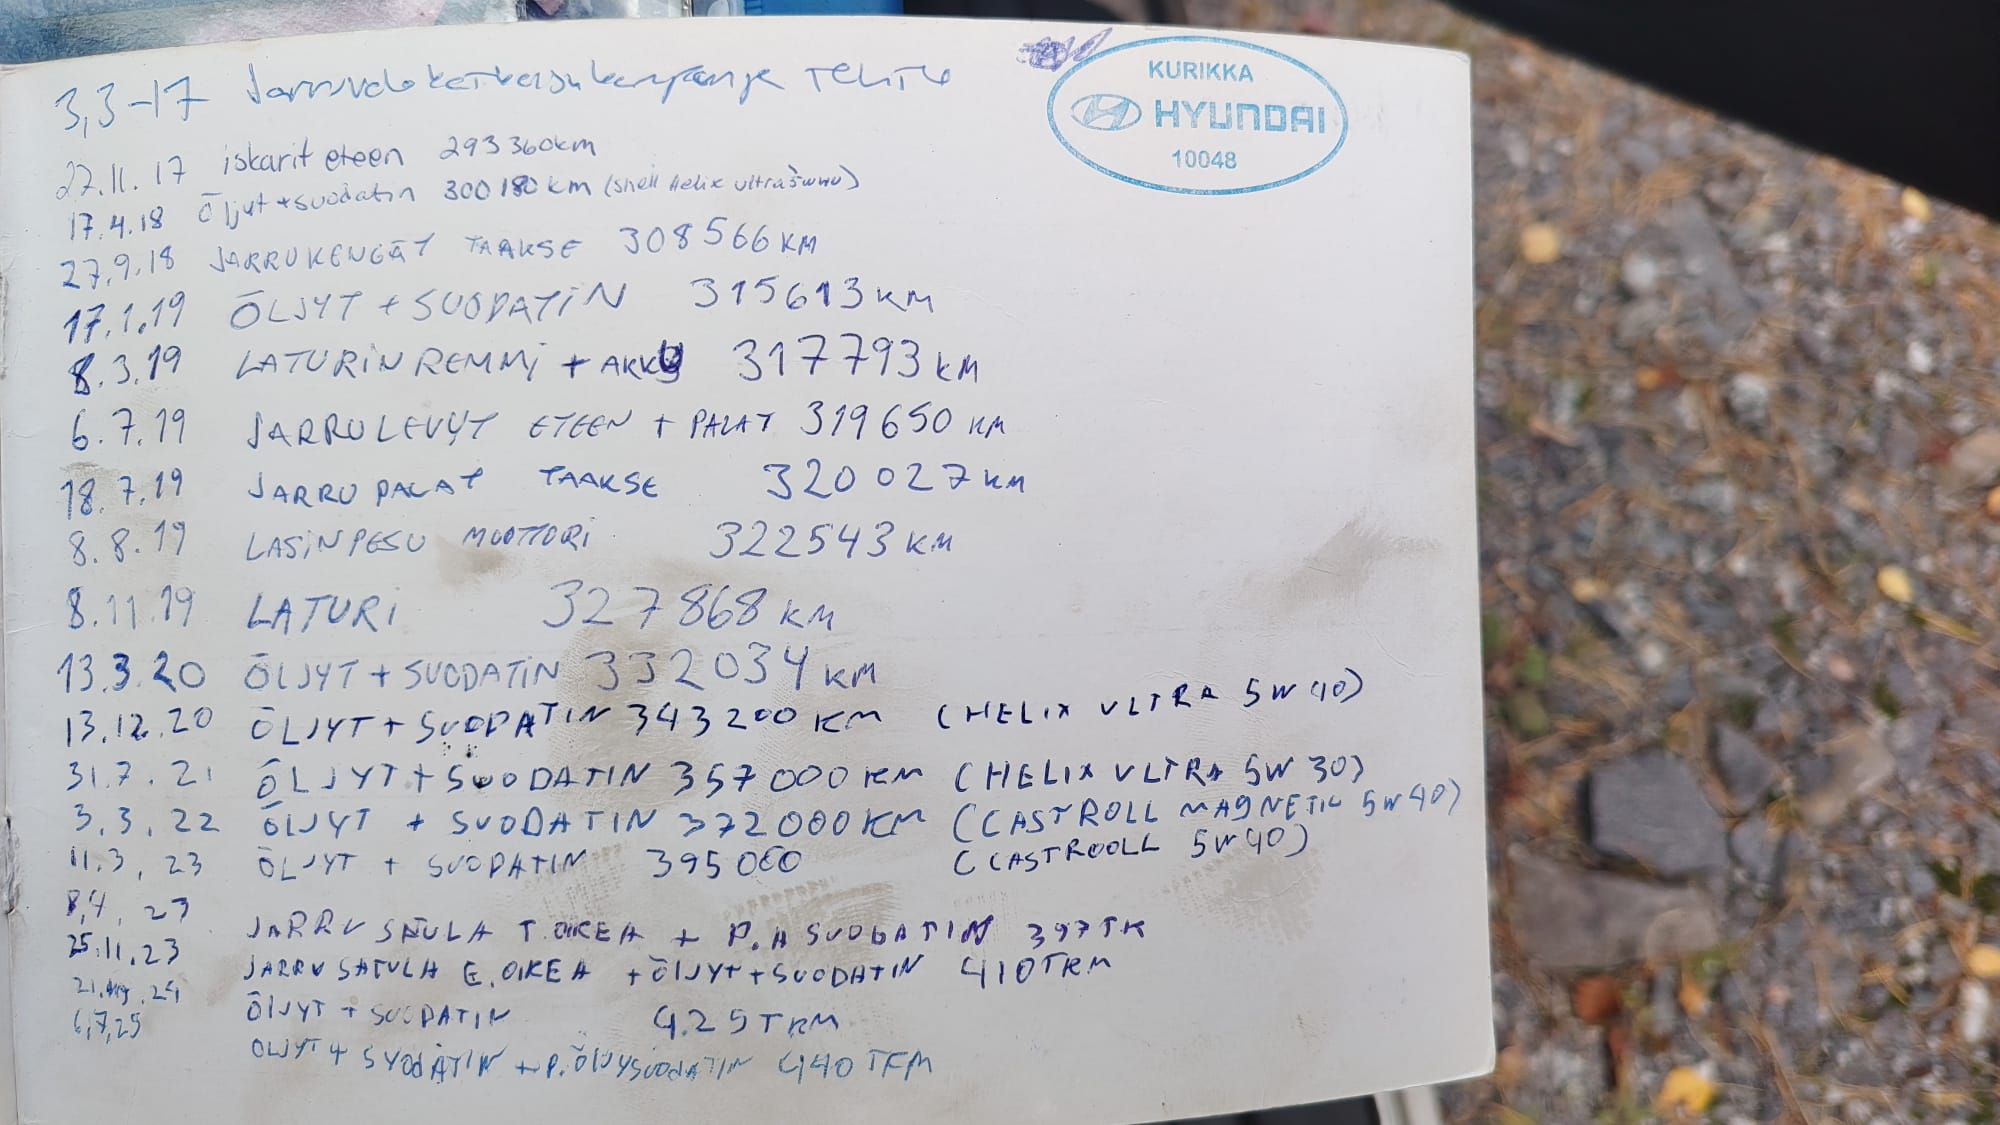 3,3-17 Jarruvalokatkaisukampanja TEHTY
KURIKKA
HYUNDAI
10048
27.11.17 iskarit eteen 293360km
17.4.18 Öljyt + suodatin 300180km (Shell Helix ultra
27.9.18 JARRUKENGÄT TAAKSE 308566KM
17.1.19 ÖLJYT + SUODATIN 315613KM
8.3.19 LATURIN REMMI + AKKU 317793KM
6.7.19 JARRULEVYT ETEEN + PALAT 319650KM
18.7.19 JARRUPALAT TAAKSE 320027KM
8.8.19 LASINPESU MOOTTORI 322543KM
8.11.19 LATURI 327868KM
13.3.20 ÖLJYT + SUODATIN 332034KM
13.12.20 ÖLJYT + SUODATIN 343200KM (HELIX ULTRA 5W40)
31.7.21 ÖLJYT + SUODATIN 357000KM (HELIX ULTRA 5W30)
3.3.22 ÖLJYT + SUODATIN 372000KM (CASTROLL MAGNETIC 5W40)
11.3.23 ÖLJYT + SUODATIN 395000 (CASTROOLL 5W40)
8,4,23 JARRU SATULA T.OIKEA + P.A SUODATIN 397TK
25.11.23 JARRUSATULA E.OIKEA + ÖLJYT + SUODATIN 410TKM
21. .24 ÖLJYT + SUODATIN 425TKM
6,7,25 ÖLJYT + SUODATIN + P.ÖLJYSUODATIN 440TKM